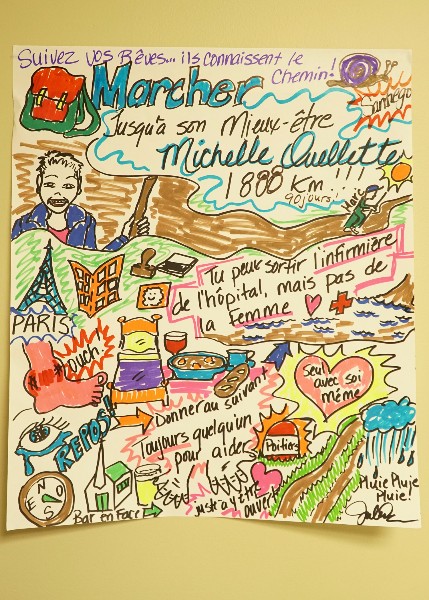 Suivez vos Rêves... ils connaissent le
Chemin!
Marcher
Jusqu'à son Mieux-être
Michelle Ouellette
1888 Km!!!
90 jours!!
Tu peux sortir l'infirmière
de l'hôpital, mais pas de
la femme
PARIS
ouch
Seul
avec soi
même
REPOS!
Donner au suivant!
Toujours quelqu'un
pour aider
Poitiers
Just à y être
ouvert
Pluie Pluie
Pluie!
N
E
S
O
Bar en Face